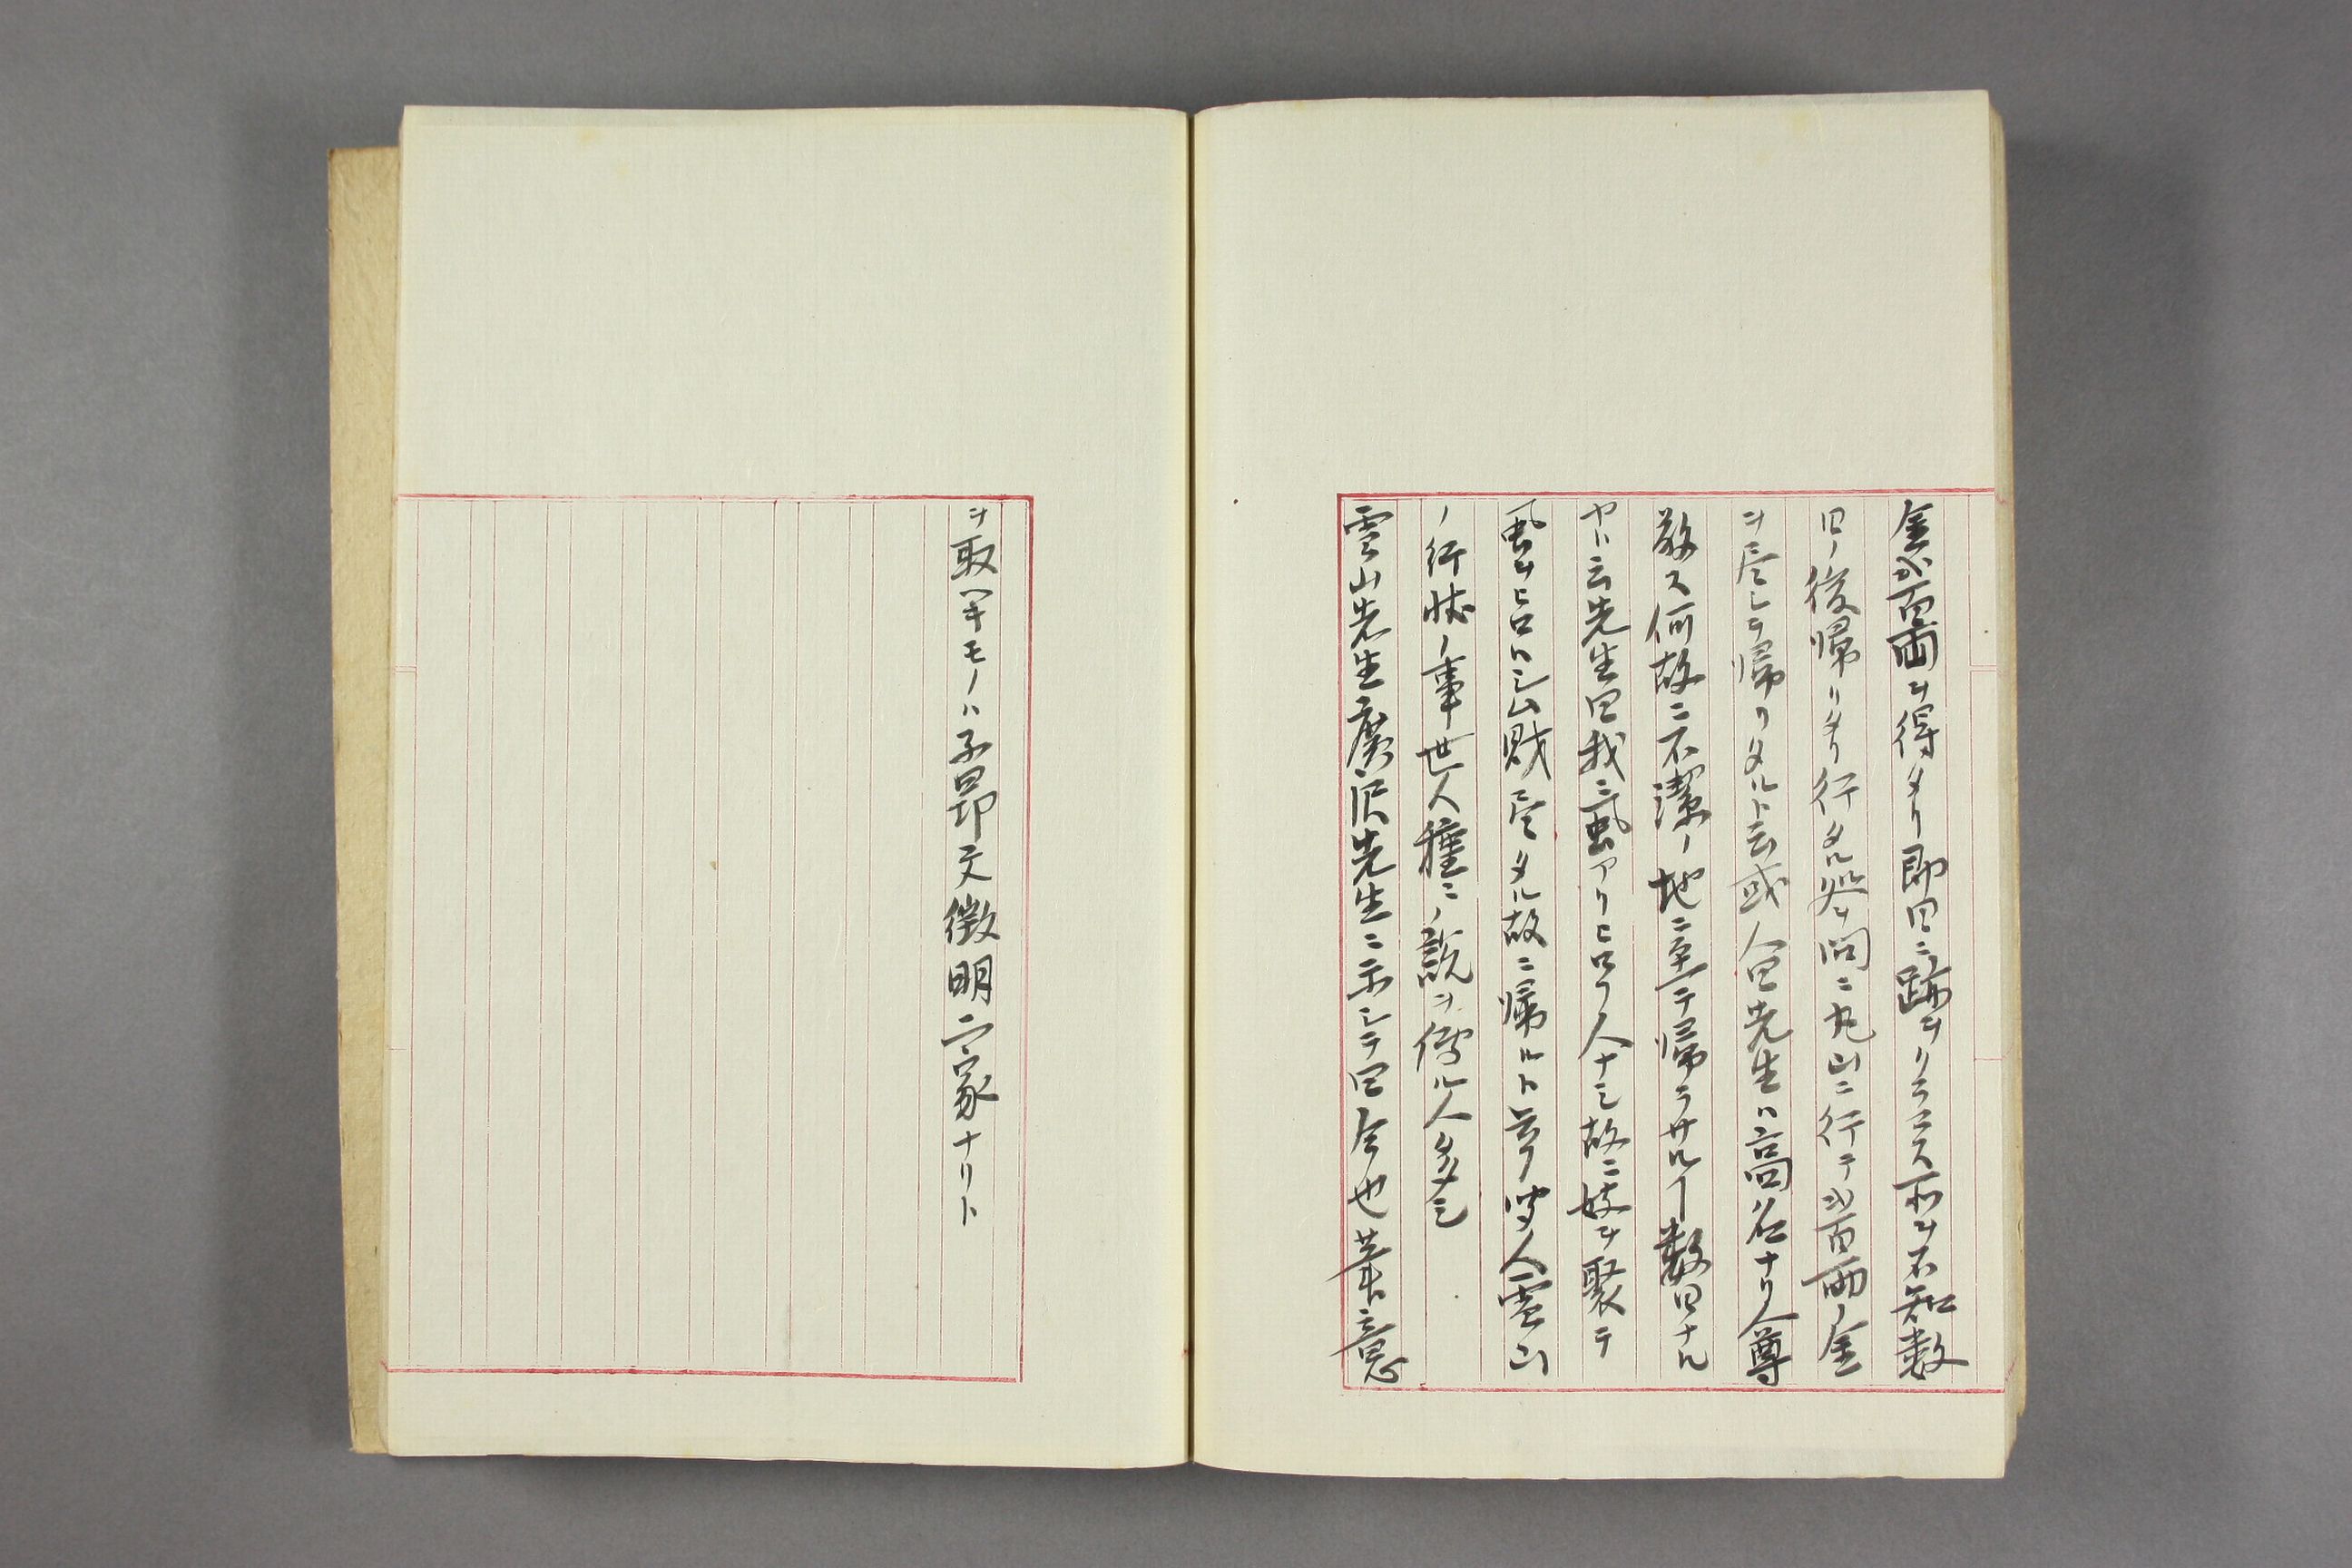 金弐百両ヲ得タリ即日ニ跡ヲクラマス所ヲ不知数
日ノ後帰リタリ行タル処ヲ問ニ丸山ニ行テ弐百両ノ金
ヲ尽シテ帰リタルト云或人曰先生ハ高名ナリ人尊
敬ス何故ニ不潔ノ地ニ至テ帰ラサルヿ数日ナル
ヤト云先生曰我ニ虱アリヒロフ人ナシ故ニ妓ヲ聚テ
虱ヲヒロハシム財尽タル故ニ帰ルト答フ唐人雲山
ノ行状ノ事世人種々ノ説ヲ傳ル人多シ
雲山先生廣沢先生ニ示シテ曰今也筆意
ヲ取ヘキモノハ子昂文徴明二家ナリト